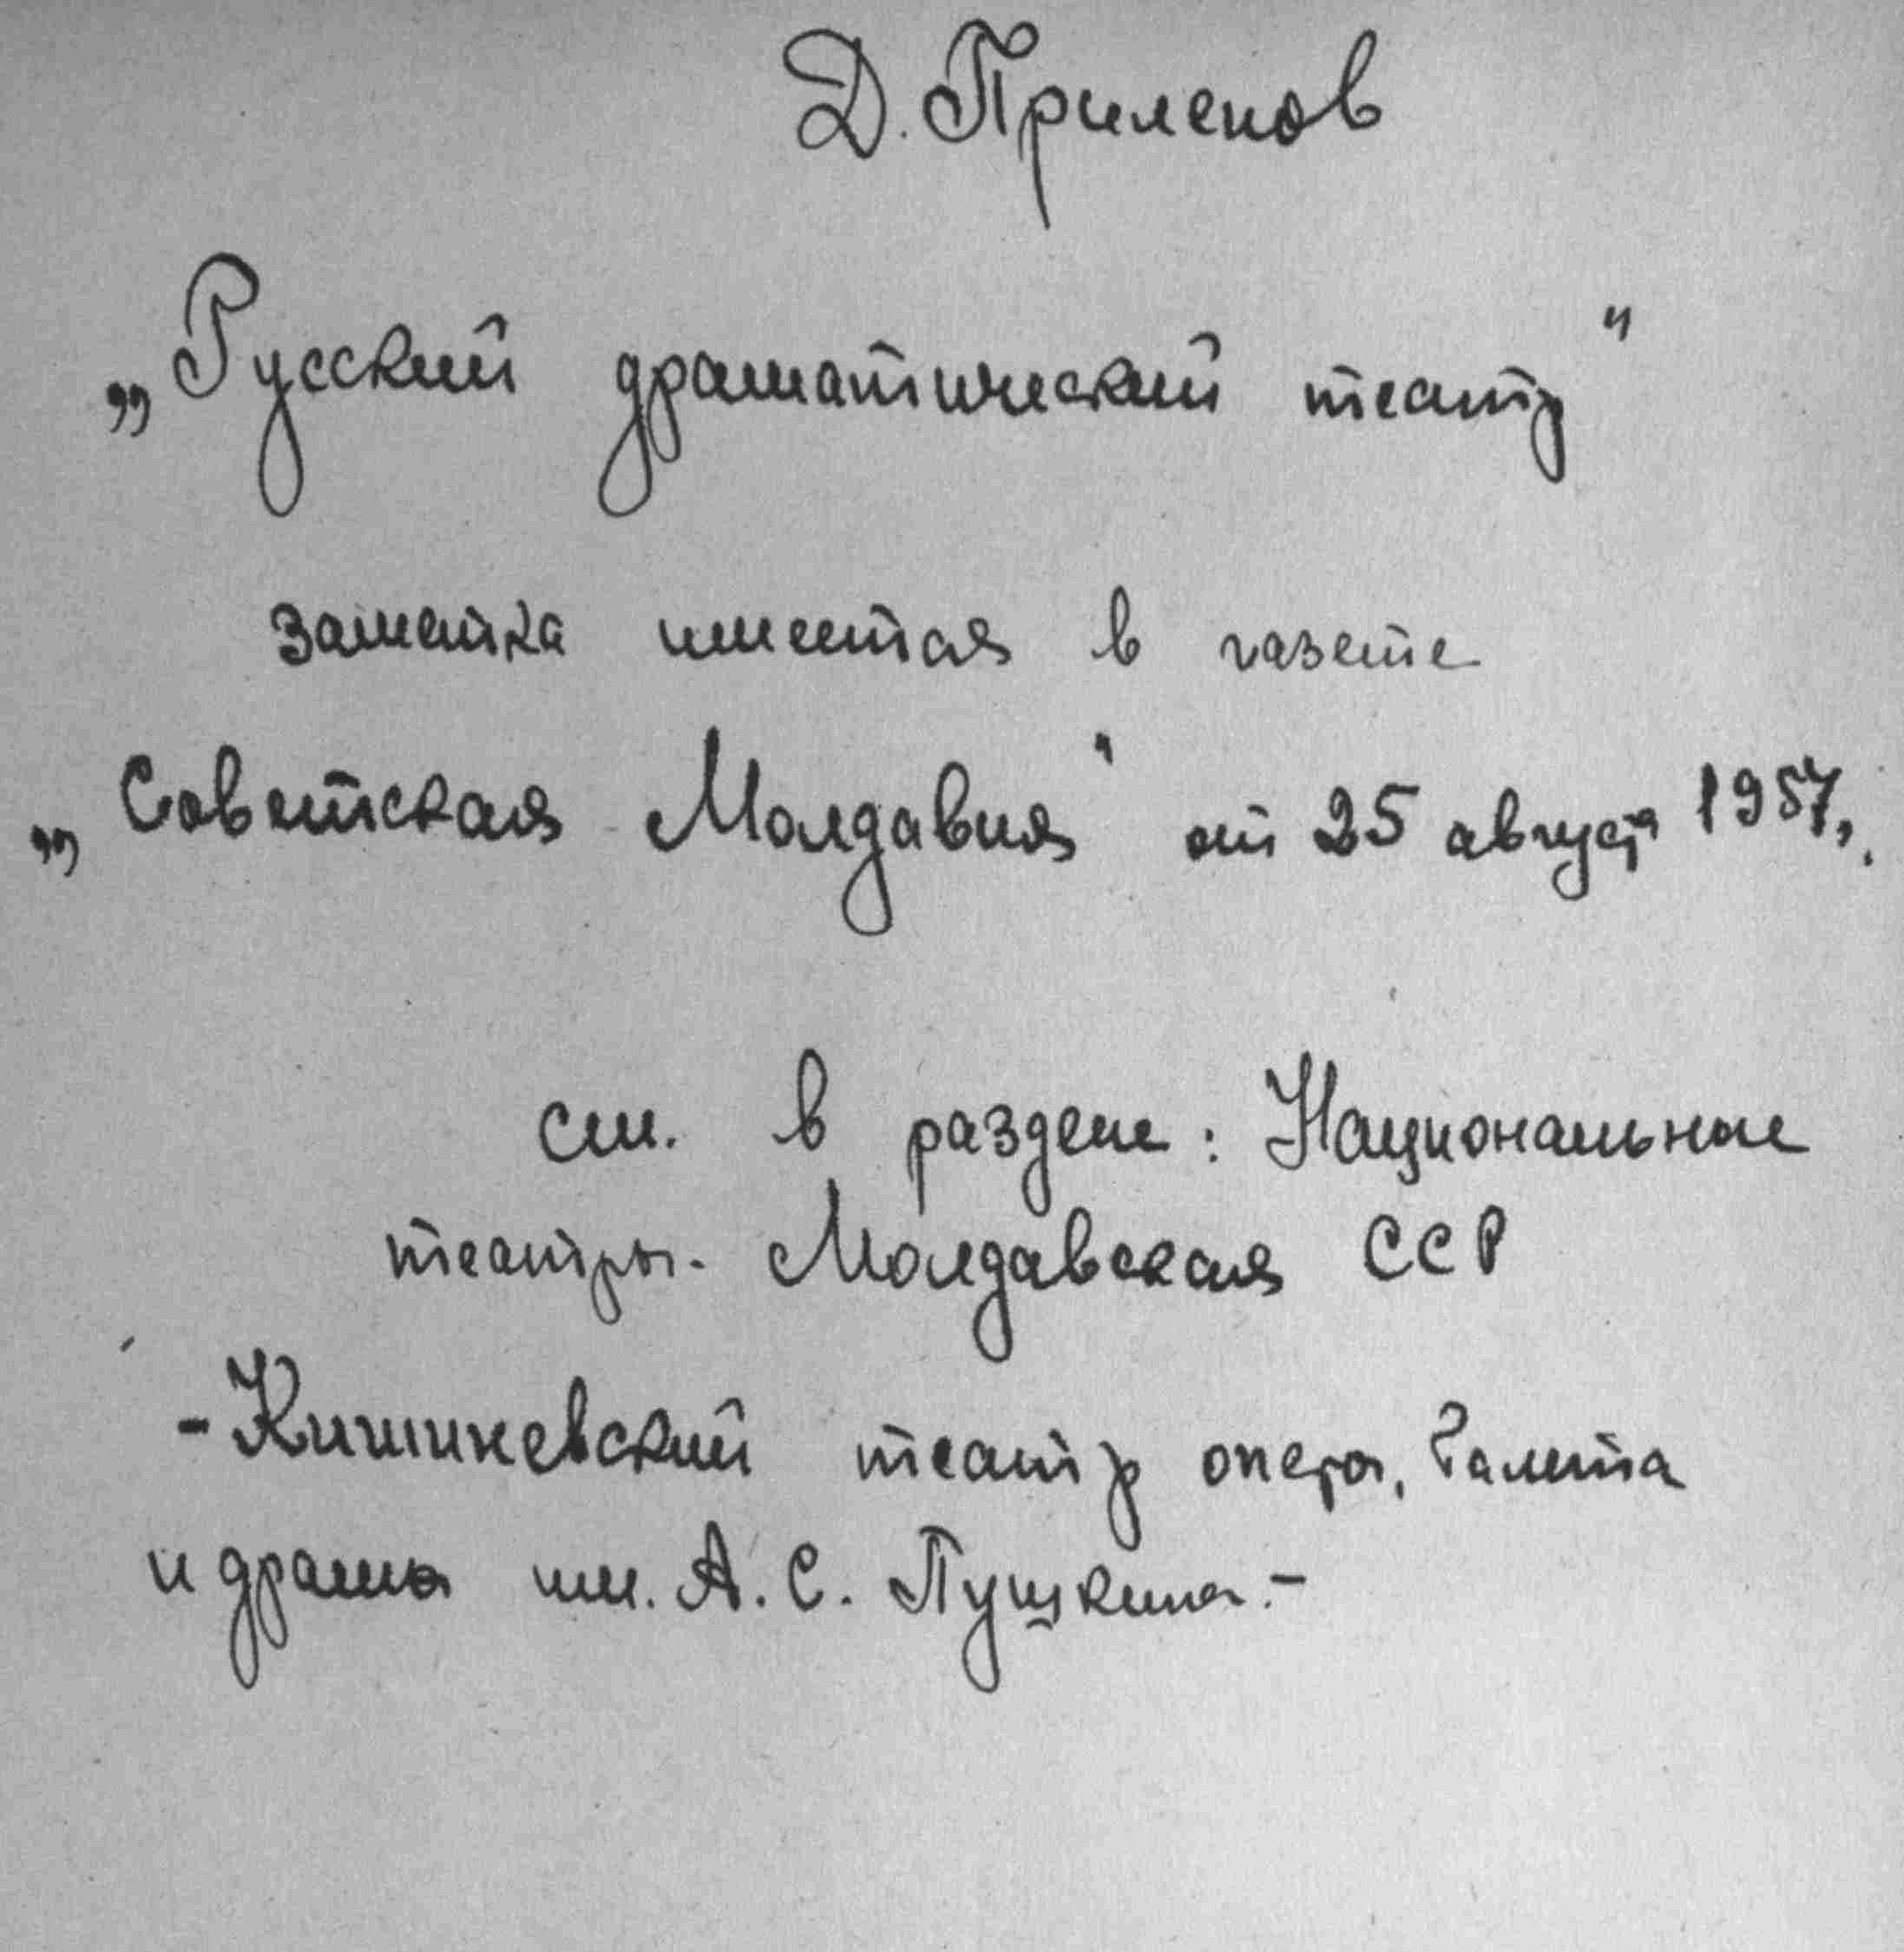 Д. Прилепов
„Русский драматический театр"
заметка имеется в газете
„Советская Молдавия" от 25 августа 1957г.
см. в разделе: Национальные
театры. Молдавская ССР
- Кишиневский театр оперы, балета
и драмы им. А. С. Пушкина. -